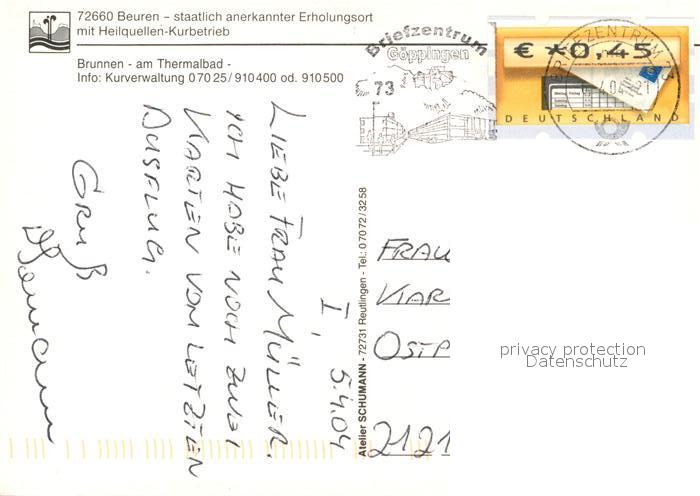 72660 Beuren – staatlich anerkannter Erholungsort
mit Heilquellen-Kurbetrieb
Brunnen - am Thermalbad -
Info: Kurverwaltung 0 70 25 / 91 04 00 od. 91 05 00
Briefzentrum
Göppingen
73
€ *0,45
DEUTSCHLAND
BRIEFZENTRUM 73
I, 5.4.04
LIEBE FRAU MÜLLER.
ICH HABE NOCH ZWEI
KARTEN VOM LETZTEN
AUSFLUG.
GRUß
Atelier SCHUMANN - 72731 Reutlingen - Tel.: 0 70 72 / 32 58
FRAU
KAR
OSTP
2121
privacy protection
Datenschutz